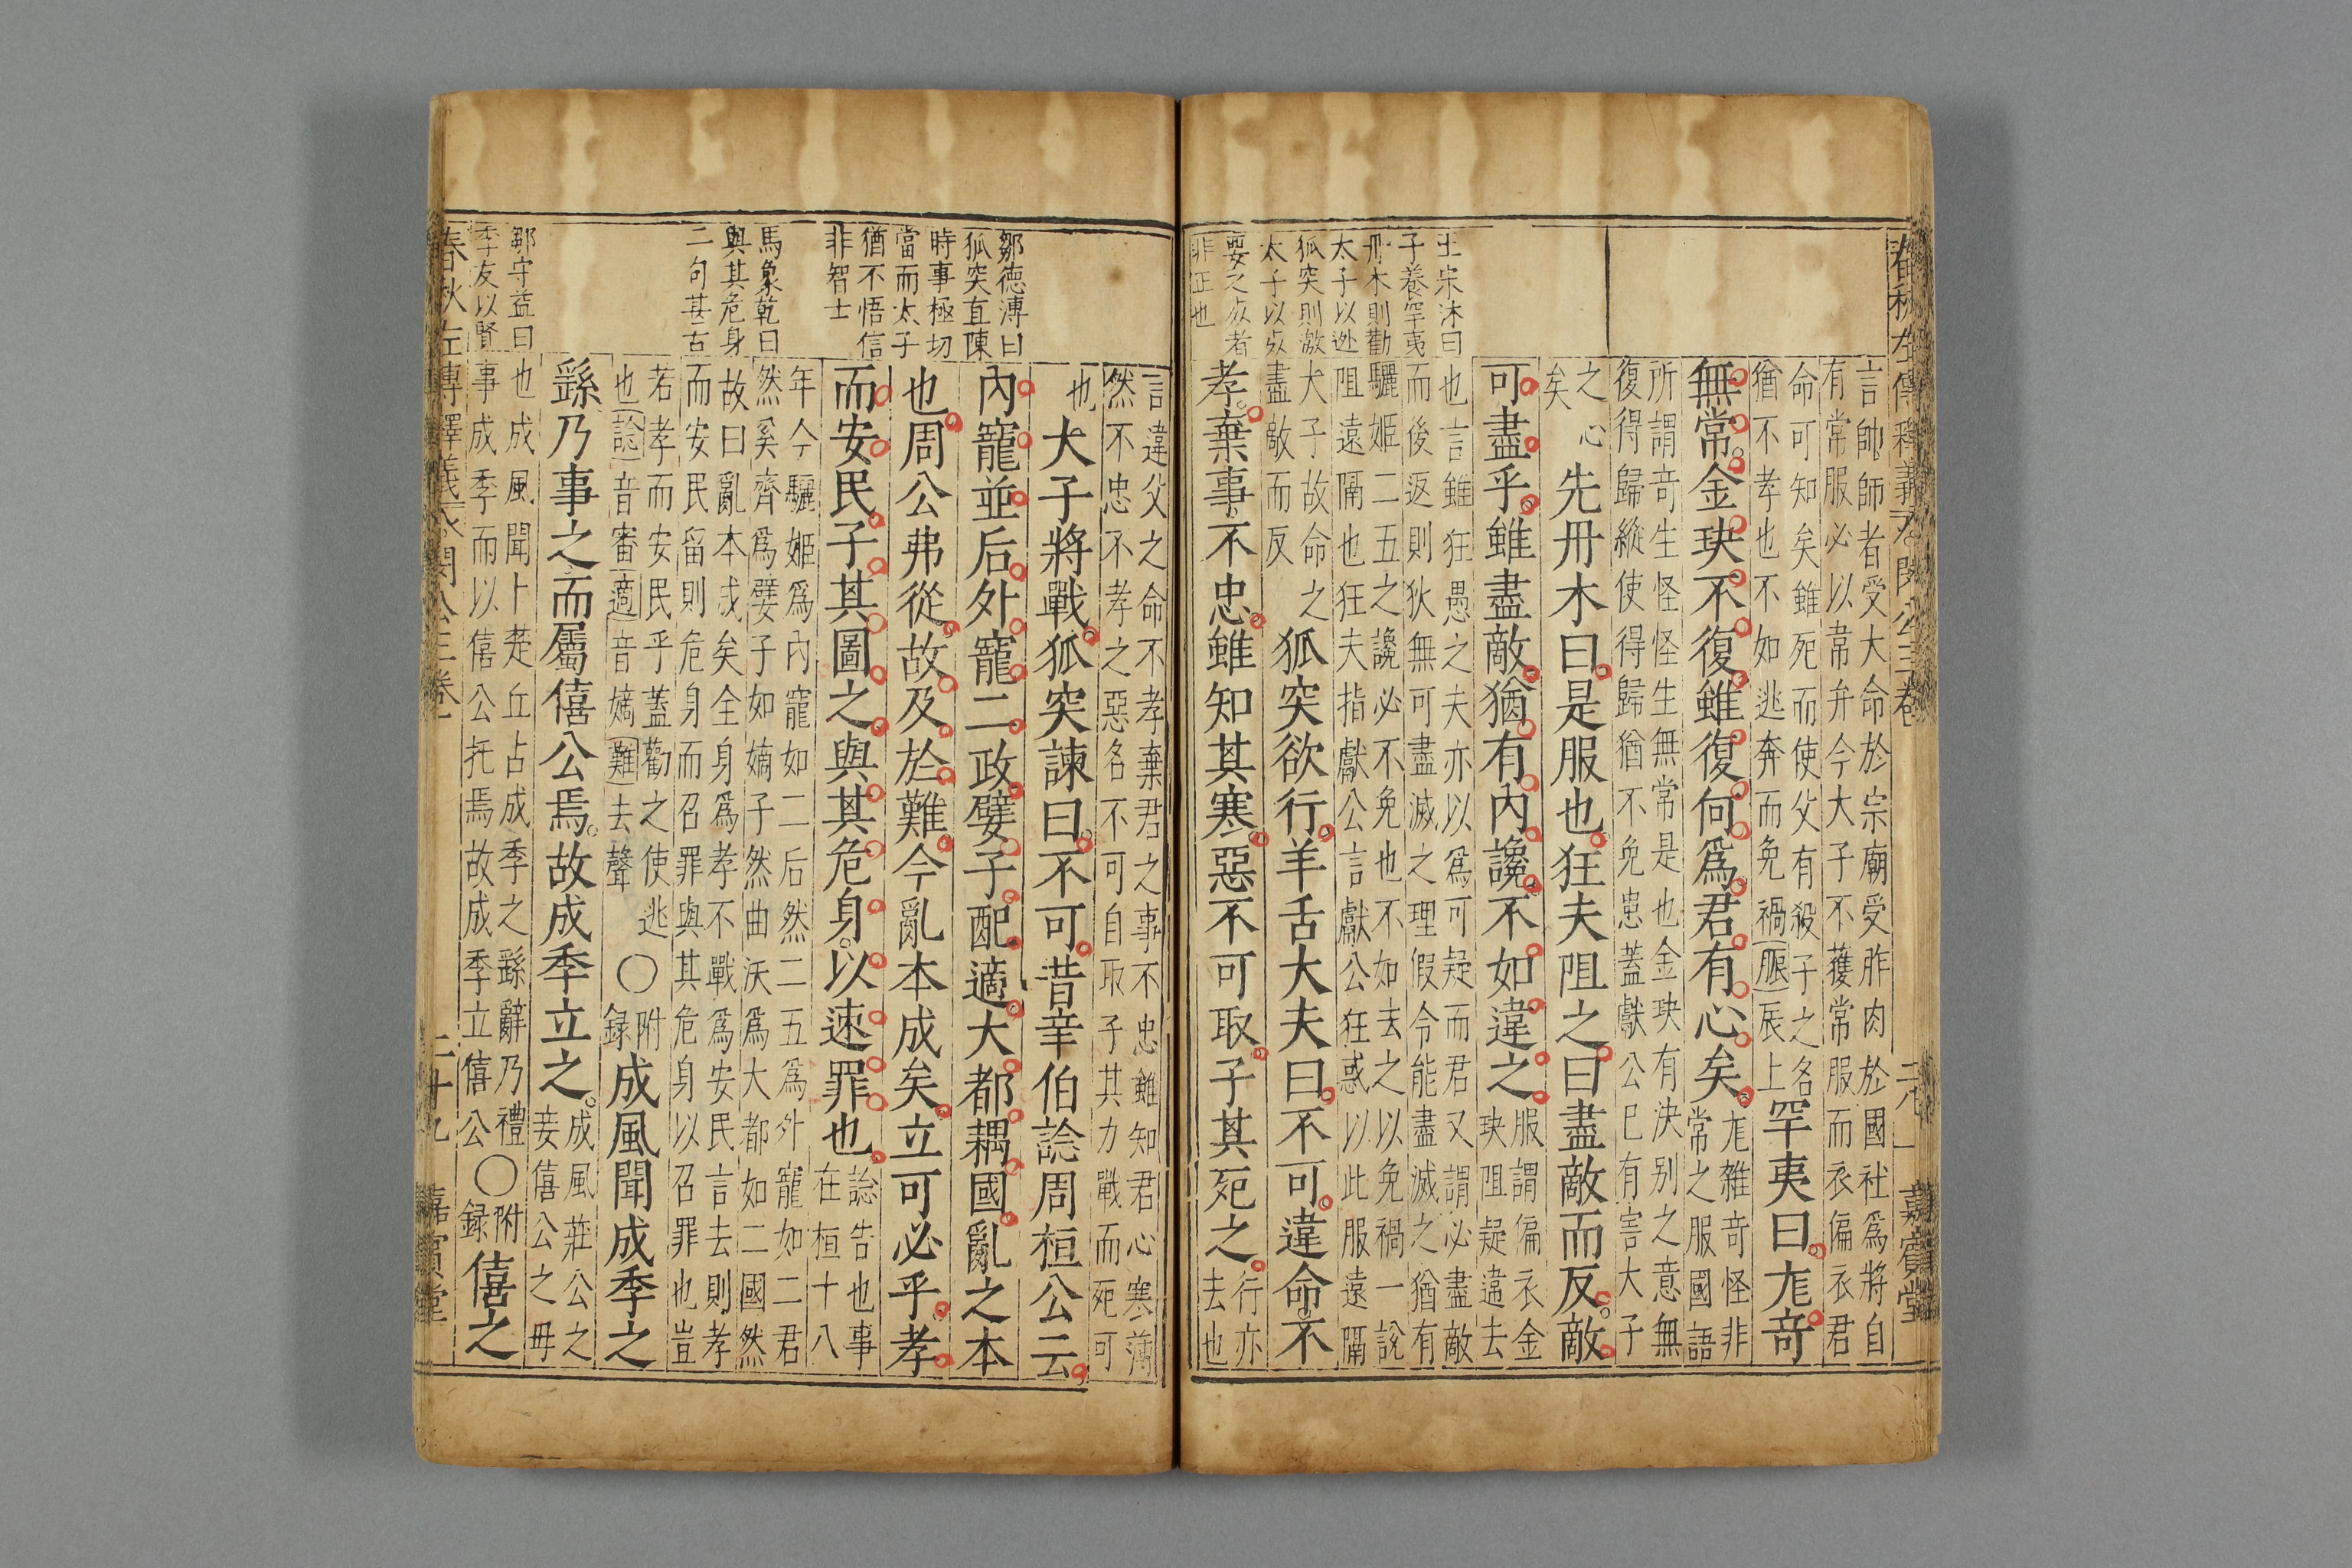 言帥師者受大命於宗廟受胙肉於國社爲將自
有常服必以常弁今大子不獲常服而衣偏衣君
命可知矣雖死而使父有殺子之名
猶不孝也不如逃奔而免禍脤辰上
罕夷曰尨奇
無常金玦不復雖復何爲君有心矣
尨雜奇怪非
常之服國語
所謂奇生怪怪生無常是也金玦有決别之意無
復得歸縱使得歸猶不免患蓋獻公已有害大子
之心
矣
先丹木曰是服也狂夫阻之曰盡敵而反敵
可盡乎雖盡敵猶有內讒不如違之
服謂偏衣金
玦阻疑違去
也言雖狂愚之夫亦以爲可疑而君又謂必盡敵
而後返則狄無可盡滅之理假令能盡滅之猶有
驪姬二五之讒必不免也不如去之以免禍一說
阻遠隔也狂夫指獻公言獻公狂惑以此服遠隔
大子故命之
盡敵而反
狐突欲行羊舌大夫曰不可違命不
孝棄事不忠雖知其寒惡不可取子其死之
行亦
去也
王宗沐曰
子養罕夷
丹木則勸
太子以逃
狐突則激
太子以
要之者
非正也
嘉賓堂
言違父之命不孝棄君之事不忠雖知君心寒薄
然不忠不孝之惡名不可自取子其力戰而死可
也
大子將戰狐突諫曰不可昔辛伯諗周桓公云
內寵並后外寵二政嬖子配適大都耦國亂之本
也周公弗從故及於難今亂本成矣立可必乎孝
而安民子其圖之與其危身以速罪也
諗告也事
在桓十八
年今驪姬爲內寵如二后然二五爲外寵如二君
然奚齊爲嬖子如嫡子然曲沃爲大都如二國然
故曰亂本成矣全身爲孝不戰爲安民言去則孝
而安民留則危身而召罪與其危身以召罪也豈
若孝而安民乎蓋勸之使逃
也諗音審適音嫡難去聲
○
附
録
成風聞成季之
繇乃事之而屬僖公焉故成季立之
成風莊公之
妾僖公之毋
也成風聞卜楚丘占成季之繇辭乃禮
事成季而以僖公托焉故成季立僖公
○
附
録
僖之
鄒德溥曰
狐突直陳
時事極切
當而太子
猶不悟信
非智士
馬象乾曰
與其危身
二句甚古
鄒守益曰
季友以賢
春秋左傳釋義
閔公三卷
二十九
嘉賓堂